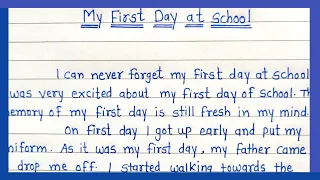 My First Day at School
I can never forget my first day at School
was very excited about my first day of School. Th
emory of my first day is still fresh in my mind.
On first day I got up early and put my
niform. As it was my first day, my father came
drop me off. I started walking towards the